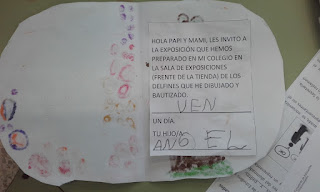 HOLA PAPI Y MAMI, LES INVITO A
LA EXPOSICIÓN QUE HEMOS
PREPARADO EN MI COLEGIO EN
LA SALA DE EXPOSICIONES
(FRENTE DE LA TIENDA) DE LOS
DELFINES QUE HE DIBUJADO Y
BAUTIZADO.
VEN
UN DÍA.
TU HIJO/A
ANGEL